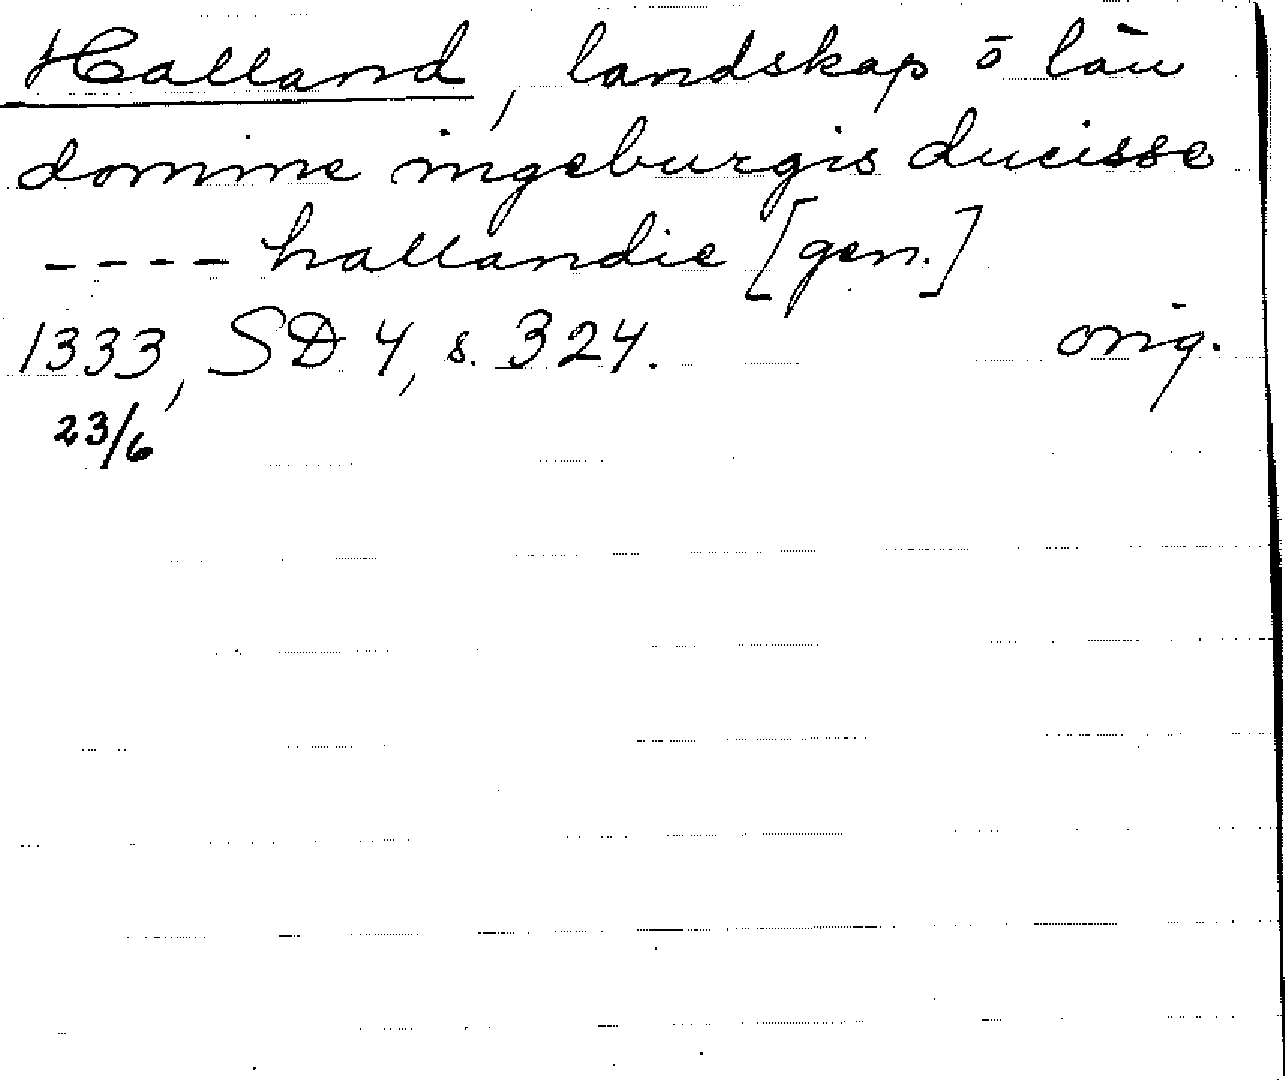 Halland, landskap ō län
domine ingeburgis ducisse
---- hallandie [gen.]
1333, SD 4, s. 324. orig.
23/6